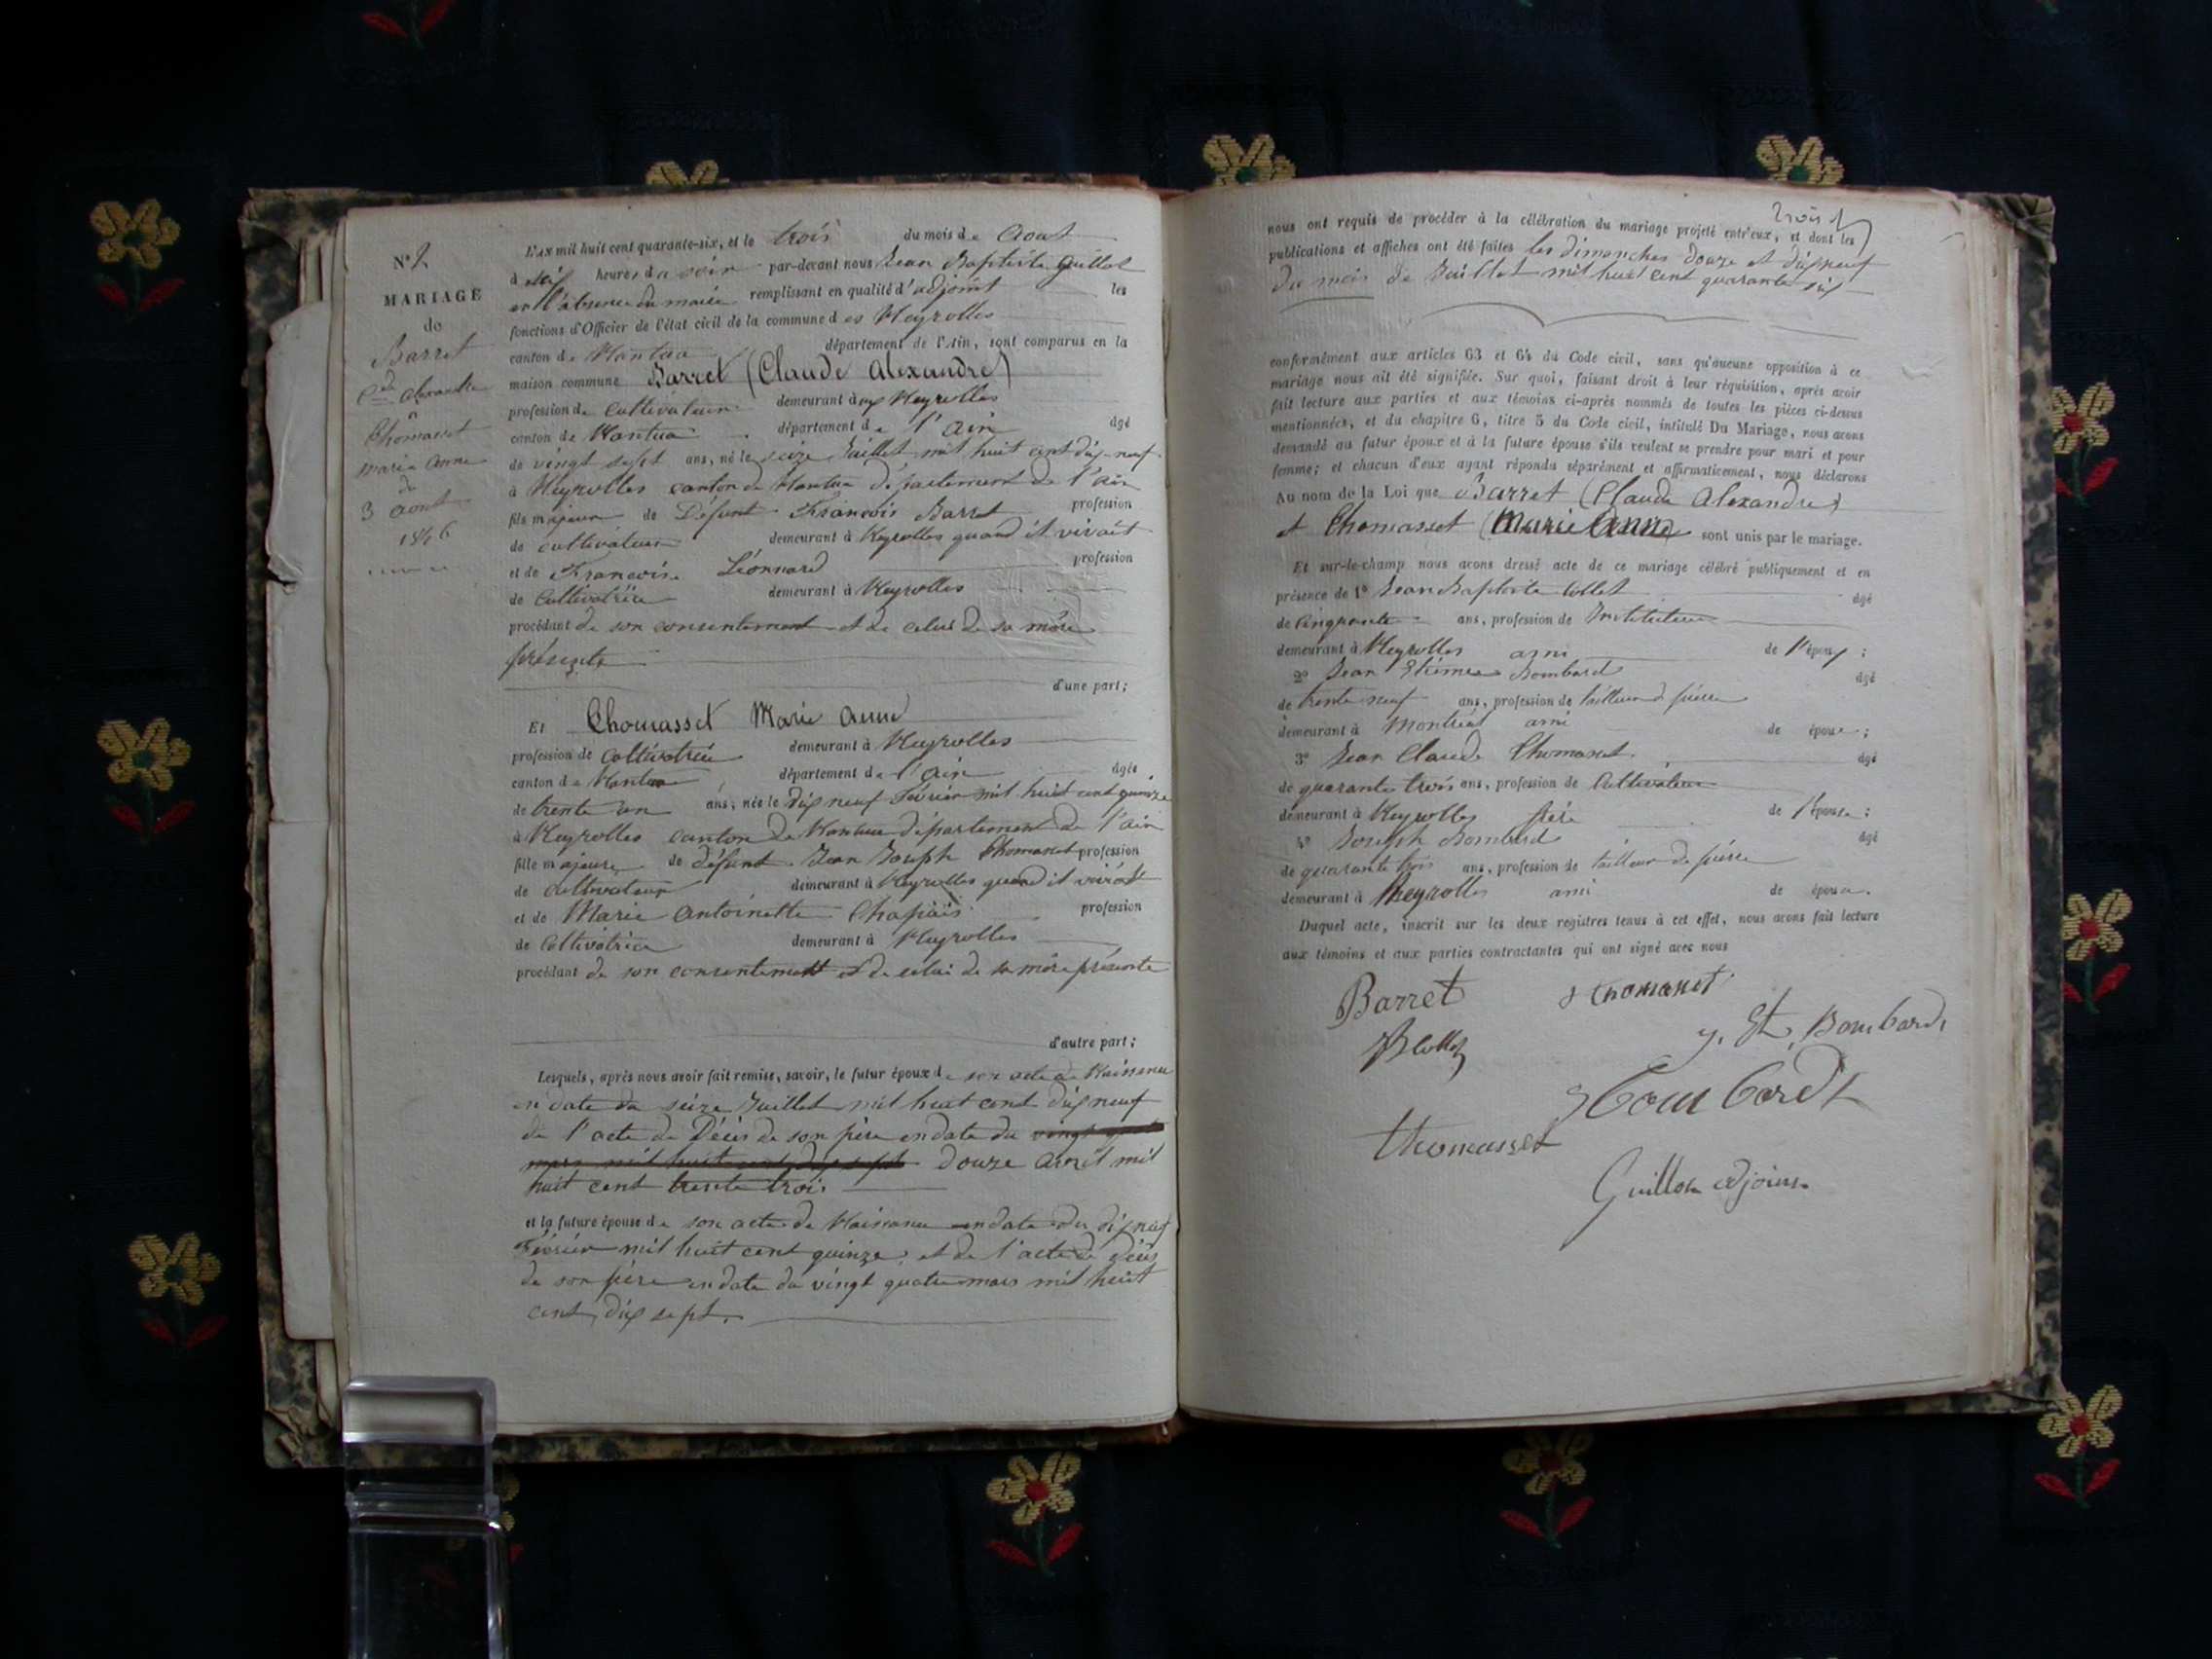 N° 2
MARIAGE
de
Barret
Cde Alexandre
à
Thomasset
marie anne
du
3 aout
1846
L'AN mil huit cent quarante-six, et le trois du mois de Aout
à six heures du soir par-devant nous Jean Baptiste Guillot
en l'absence du maire remplissant en qualité d'adjoint les
fonctions d'Officier de l'état civil de la commune des Neyrolles
canton de Nantua département de l'Ain, sont comparus en la
maison commune Barret (Claude Alexandre)
profession de cultivateur demeurant aux Neyrolles
canton de Nantua département de l'ain âgé
de vingt sept ans, né le seize Juillet mil huit cent dix neuf
à Neyrolles canton de Nantua département de l'ain
fils majeur de Defunt François Barret profession
de cultivateur demeurant à Neyrolles quand il vivait
et de Françoise Léonnard profession
de Cultivatrice demeurant à Neyrolles
procédant de son consentement et de celui de sa mère
présente
d'une part;
ET Thomasset Marie anne
profession de cultivatrice demeurant à Neyrolles
canton de Nantua département de l'ain âgée
de trente un ans, née le dix neuf Février mil huit cent quinze
à Neyrolles canton de Nantua département de l'ain
fille majeure de défunt Jean Joseph Thomasset profession
de cultivateur demeurant à Neyrolles quand il vivait
et de Marie Antoinette Chapuis profession
de Cultivatrice demeurant à Neyrolles
procédant de son consentement et de celui de sa mère présente
d'autre part;
Lesquels, après nous avoir fait remise, savoir, le futur époux de son acte de Naissance
en date du seize Juillet mil huit cent dix neuf
de l'acte de Décès de son père en date du vingt quatre
mars mil huit cent dix sept douze avril mil
huit cent trente trois
et la future épouse de son acte de Naissance en date du dix neuf
Février mil huit cent quinze, et de l'acte de décès
de son père en date du vingt quatre mars mil huit
cent dix sept.
trois
nous ont requis de procéder à la célébration du mariage projeté entr'eux, et dont les
publications et affiches ont été faites les dimanches douze et dix neuf
du mois de Juillet mil huit cent quarante six
conformément aux articles 63 et 64 du Code civil, sans qu'aucune opposition à ce
mariage nous ait été signifiée. Sur quoi, faisant droit à leur réquisition, après avoir
fait lecture aux parties et aux témoins ci-après nommés de toutes les pièces ci-dessus
mentionnées, et du chapitre 6, titre 5 du Code civil, intitulé Du Mariage, nous avons
demandé au futur époux et à la future épouse s'ils veulent se prendre pour mari et pour
femme; et chacun d'eux ayant répondu séparément et affirmativement, nous déclarons
Au nom de la Loi que Barret (Claude Alexandre)
et Thomasset (Marie Anne) sont unis par le mariage.
Et sur-le-champ nous avons dressé acte de ce mariage célébré publiquement et en
présence de 1° Jean Baptiste Collet âgé
de Cinquante ans, profession de Instituteur
demeurant à Neyrolles ami de l'époux;
2° Jean Etienne Bombard âgé
de trente neuf ans, profession de tailleur de pierre
demeurant à Montréal ami de époux;
3° Jean Claude Thomasset âgé
de quarante trois ans, profession de Cultivateur
demeurant à Neyrolles frère de l'épouse;
4° Joseph Bombard âgé
de quarante trois ans, profession de tailleur de pierre
demeurant à Neyrolles ami de épouse.
Duquel acte, inscrit sur les deux registres tenus à cet effet, nous avons fait lecture
aux témoins et aux parties contractantes qui ont signé avec nous
Barret Thomasset
J. Et. Bombard
Bombard
thomasset
Guillot adjoint